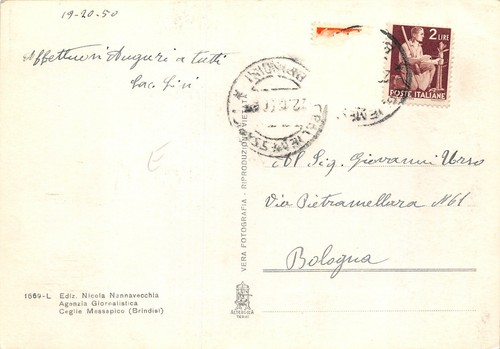 19-20-50
Affettuosi Auguri a tutti
2 LIRE
POSTE ITALIANE
(BRINDISI)
Al Sig. Giovanni Urso
Via Pietramellara N 61
Bologna
VERA FOTOGRAFIA - RIPRODUZIONE VIETATA
1569-L Ediz. Nicola Nannavecchia
Agenzia Giornalistica
Ceglie Messapico (Brindisi)